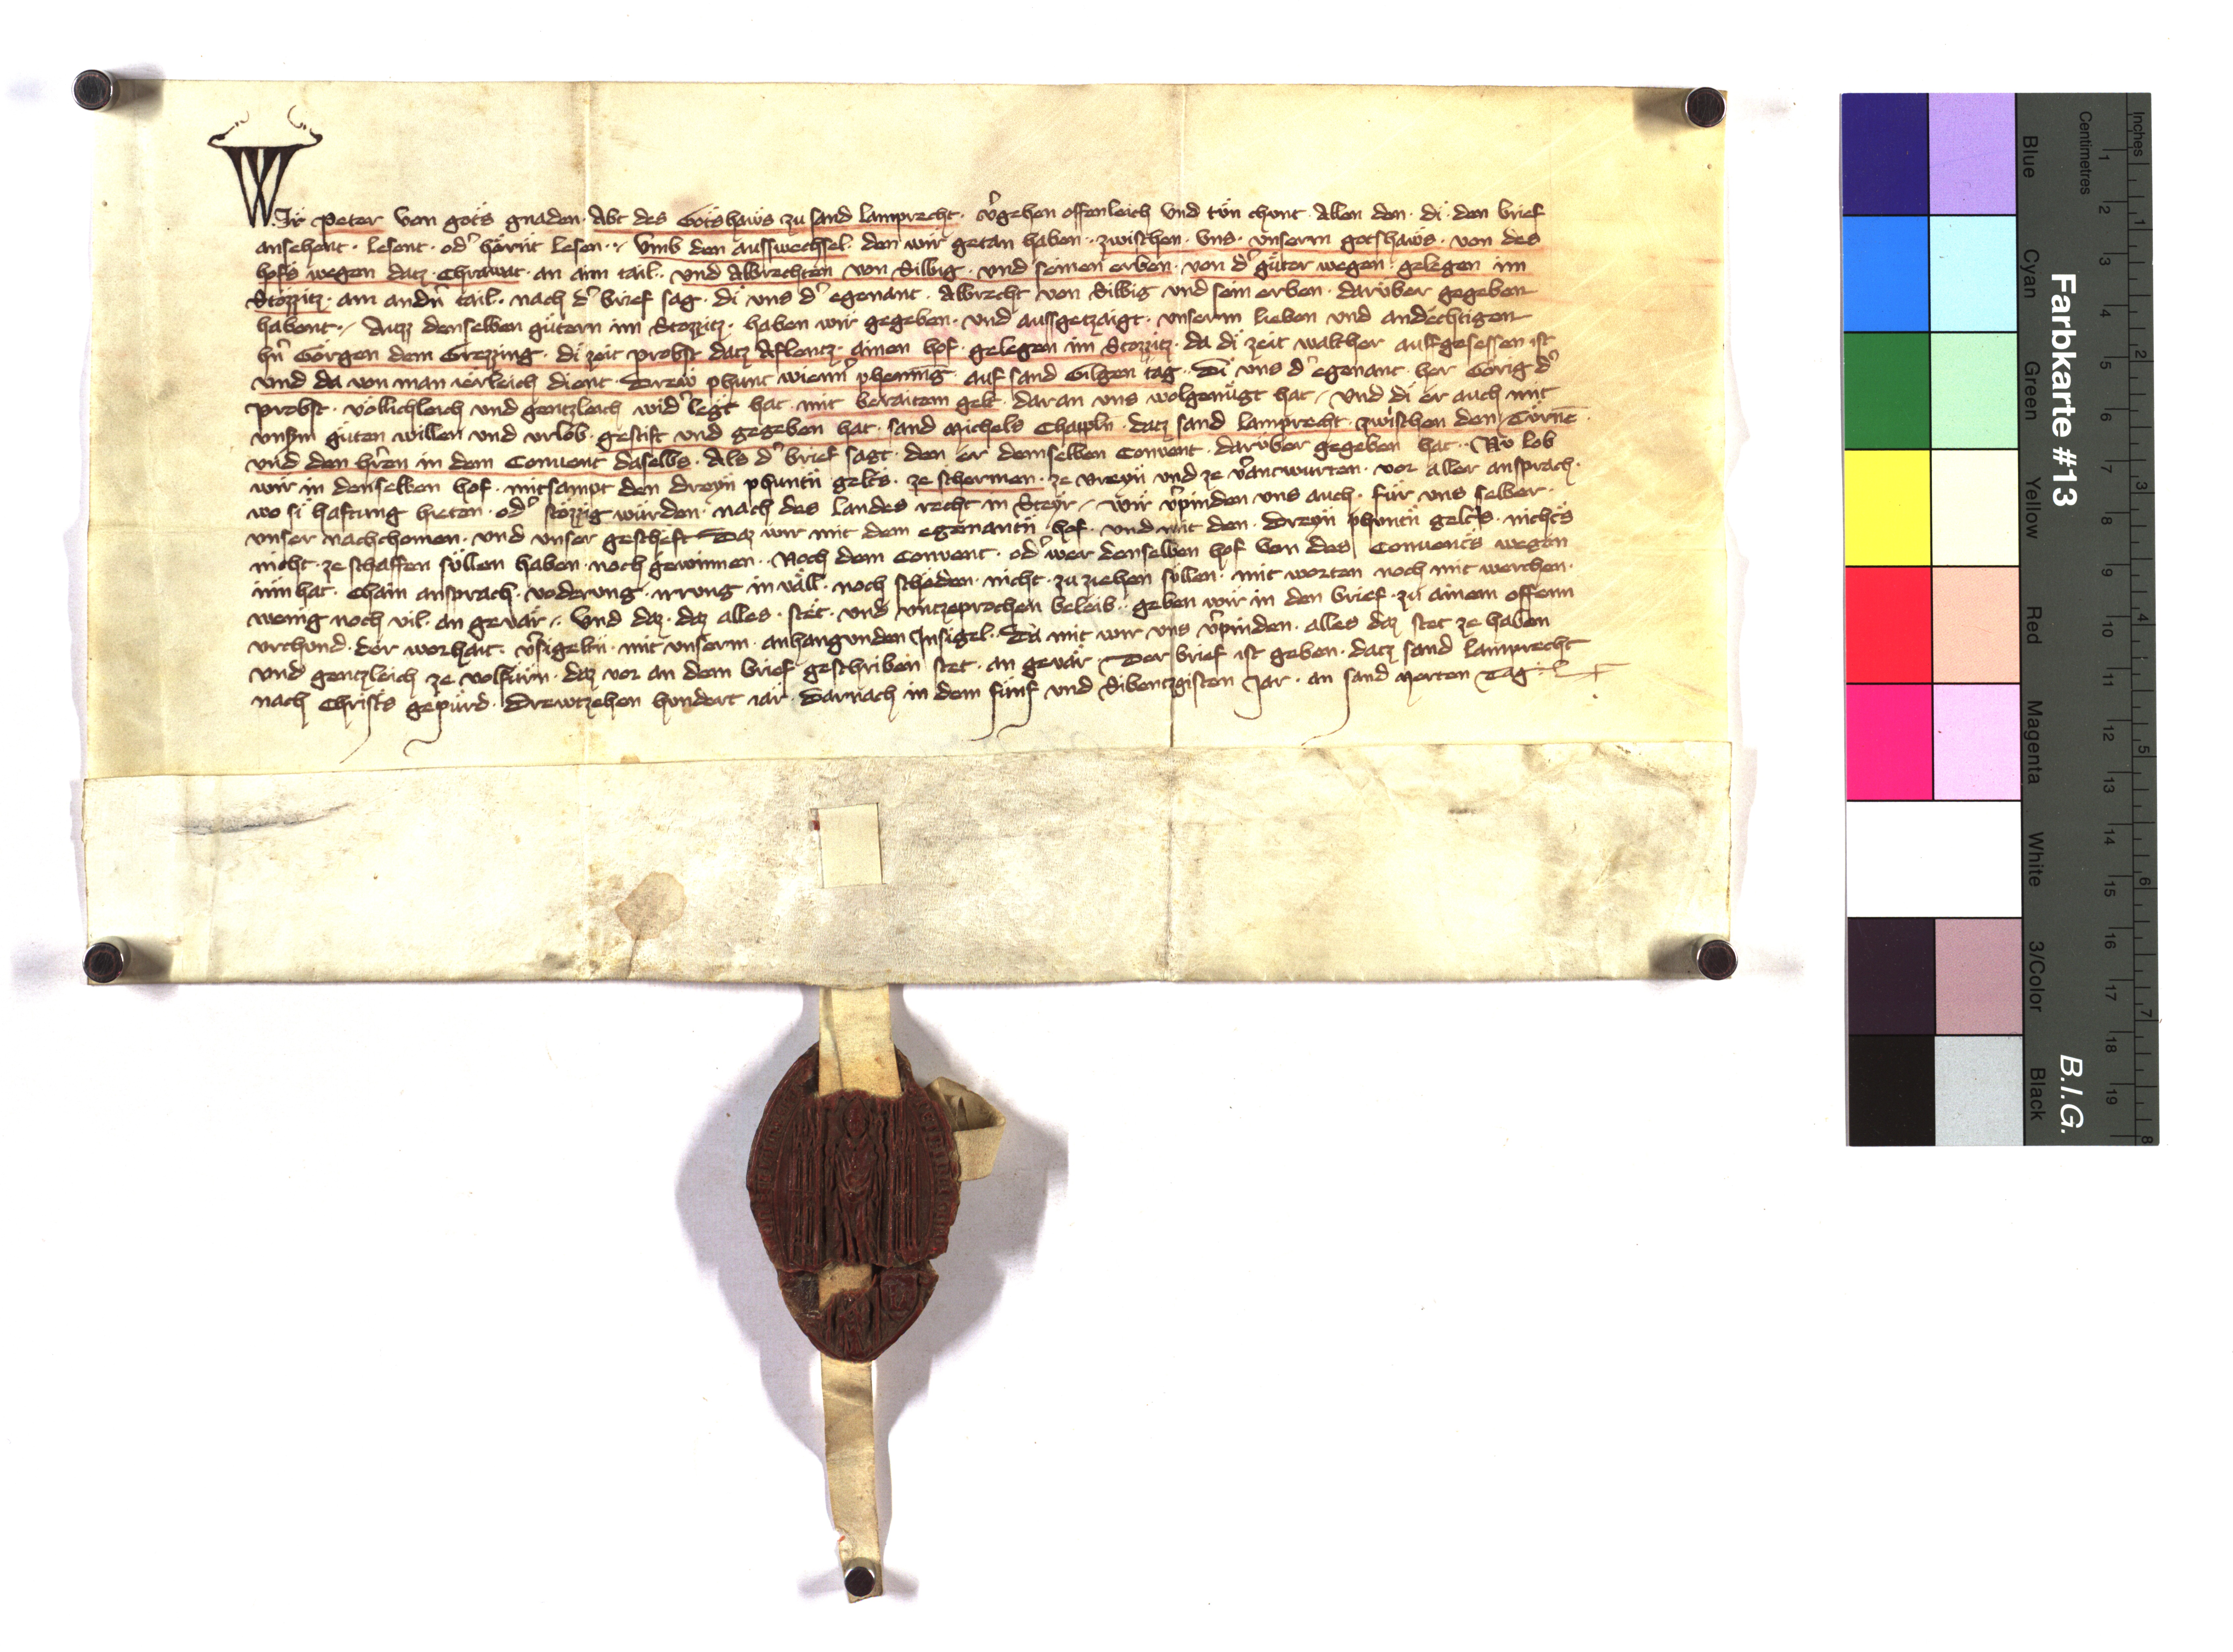 Wir Peter von gots gnaden · Abt des Gotshaws zu sand lamprecht · v͛gehen offenleich vnd tůn chunt · Allen den · di · den brief
ansehent · lesent · od͛ hörnt lesen · Vmb den ausswechsel · den wir getan haben · zwischen · vns · vnserm gotshaws · von des
hofs wegen datz · Chrawat · an aim tail · vnd Albrechten von Silbig · vnd seinen erben · von d͛ güter wegen · gelegen im
Stözzitz · am andn̄ tail · nach d͛ brief sag · di vns d͛ egenant · Albrecht von Silbig vnd sein erben · darüber gegeben
habent · Auzz denselben gütern im Stozzitz · haben wir gegeben · vnd aussgetzaigt · vnserm lieben vnd andechtigen
hn̄ Görgen dem Grezzing · di zeit probst datz Aflentz · ainen hof · gelegen im Stozzitz · da di zeit walther auffgesessen ist
vnd da von man ierleich dient · Drew phunt wienn͛ phenning · auf sand Gilgen tag · Di vns d͛ egenant · her Görig d͛
probst · völlichleich vnd gentzleich wid͛legt hat · mit beraitem gelt · daran vns wolgenügt hat · vnd di er auch mit
vnsm̄ güten willen vnd vrlob · gestift vnd gegeben hat · sand Michels Chappln̄ · datz sand lamprecht · zwischen den Türnē
vnd den hr̄en in dem Conuent daselbs · Als d͛ brief sagt · den er demselben Conuent · darüber gegeben hat · Nu lob
wir in denselben hof · mitsampt den dreyn̄ phuntn̄ gelts · ze schermen · ze vreyn̄ vnd ze v͛antwurten · vor aller ansprach ·
wo si haftung heten · od͛ stözzig würden · nach des landes recht in Steyr · Wir v͛pinden vns auch · für vns selber ·
vnser nachchomen · vnd vnser gescheft Daz wir mit dem egenantn̄ · hof · vnd mit den · Dreyn̄ phuntn̄ gelts · nichts
nicht · ze schaffen süllen haben · noch gewinnen · Noch dem Conuent · od͛ wer denselben hof von des Conuents wegen
inn hat · Chain ansprach · voderung · irrung · inväll · noch scheden · nicht · zu ziehen süllen · mit worten noch mit werchen ·
wenig noch vil · an gevär · Vnd daz · daz alles · stet · vnd vntzeprochen beleib · geben wir in den brief · zu ainem offenn
vrchund · der worhait · v͛sigeltn̄ · mit vnserm · anhangunden Insigel · Da mit wir vns v͛pinden · alles daz stet ze haben
vnd gentzleich ze volfürn · daz vor an dem brief geschriben stet · an gevär · Der brief ist geben · datz sand lamprecht
nach Christs gepürd · Drewtzehen hundert iar · Darnach in dem fünf vnd Sibentzgisten Jar · an sand Merten Tag
Farbkarte #13
B.I.G.
Inches
Centimetres
1 2 3 4 5 6 7 8 9 10 11 12 13 14 15 16 17 18 19
1 2 3 4 5 6 7 8
Blue
Cyan
Green
Yellow
Red
Magenta
White
3/Color
Black